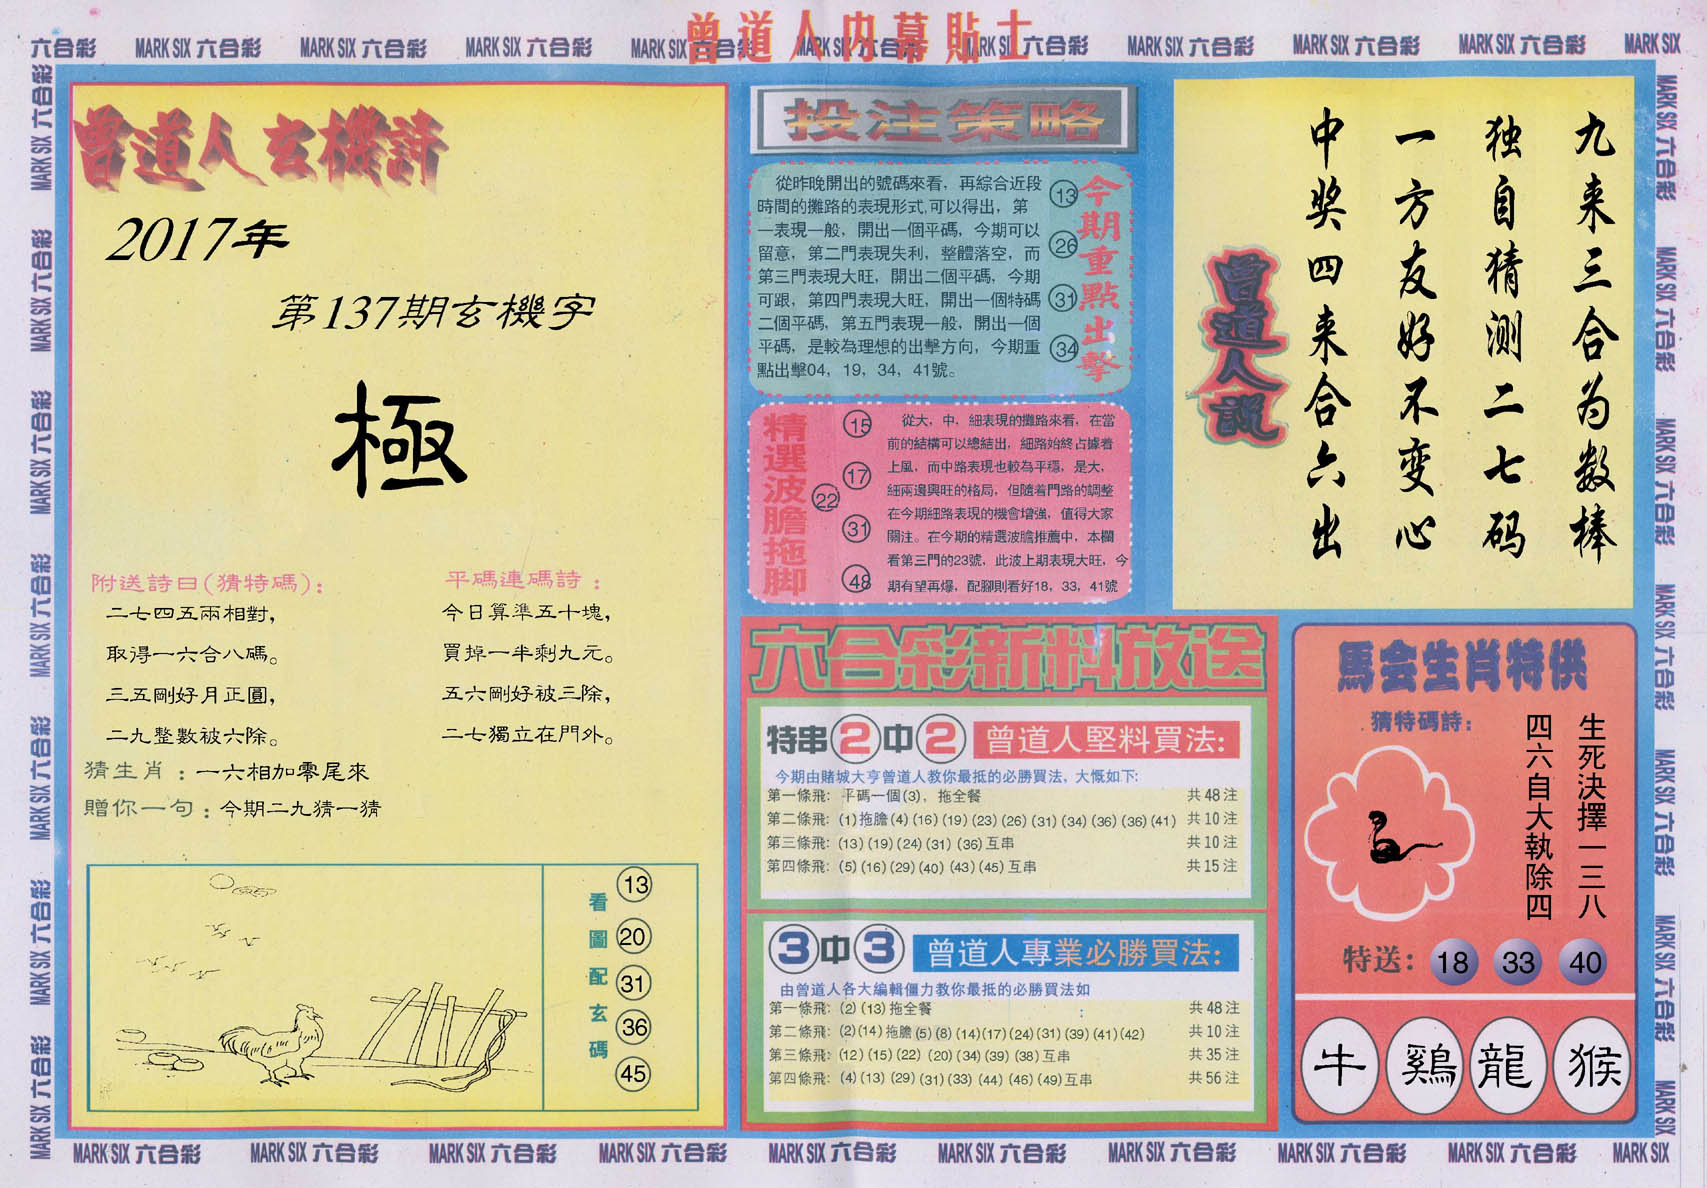 曾道人内幕貼士
六合彩 MARK SIX 六合彩 MARK SIX 六合彩 MARK SIX 六合彩 MARK SIX 六合彩 MARK SIX 六合彩 MARK SIX 六合彩 MARK SIX 六合彩 MARK SIX 六合彩 MARK SIX 六合彩 MARK SIX
曾道人玄機詩
2017年
第137期玄機字
極
附送詩曰(猜特碼)：
二七四五兩相對，
取得一六合八碼。
三五剛好月正圓，
二九整數被六除。
平碼連碼詩：
今日算準五十塊，
買掉一半剩九元。
五六剛好被三除，
二七獨立在門外。
猜生肖：一六相加零尾來
贈你一句：今期二九猜一猜
看圖配玄碼
13
20
31
36
45
投注策略
從昨晚開出的號碼來看，再綜合近段
時間的攤路的表現形式,可以得出，第
一表現一般，開出一個平碼，今期可以
留意，第二門表現失利，整體落空，而
第三門表現大旺，開出二個平碼，今期
可跟，第四門表現大旺，開出一個特碼
二個平碼，第五門表現一般，開出一個
平碼，是較為理想的出擊方向，今期重
點出擊04，19，34，41號。
13
26
31
34
今期重點出擊
精選波膽拖脚
15
17
22
31
48
從大，中，細表現的攤路來看，在當
前的結構可以總結出，細路始終占據着
上風，而中路表現也較為平穩，是大，
細兩邊興旺的格局，但隨着門路的調整
在今期細路表現的機會增強，值得大家
關注。在今期的精選波膽推薦中，本欄
看第三門的23號，此波上期表現大旺，今
期有望再爆，配腳則看好18，33，41號
九来三合为数棒
独自猜测二七码
一方友好不变心
中奖四来合六出
曾道人説
六合彩新料放送
特串2中2 曾道人堅料買法:
今期由賭城大亨曾道人教你最抵的必勝買法，大慨如下:
第一條飛: 平碼一個(3)，拖全餐 共48注
第二條飛: (1)拖膽(4)(16)(19)(23)(26)(31)(34)(36)(36)(41) 共10注
第三條飛: (13)(19)(24)(31)(36)互串 共10注
第四條飛: (5)(16)(29)(40)(43)(45)互串 共15注
3中3 曾道人專業必勝買法:
由曾道人各大編輯僵力教你最抵的必勝買法如
第一條飛: (2)(13)拖全餐 共48注
第二條飛: (2)(14)拖膽(5)(8)(14)(17)(24)(31)(39)(41)(42) 共10注
第三條飛: (12)(15)(22)(20)(34)(39)(38)互串 共35注
第四條飛: (4)(13)(29)(31)(33)(44)(46)(49)互串 共56注
馬会生肖特供
猜特碼詩:
生死決擇一三八
四六自大執除四
特送: 18 33 40
牛 鷄 龍 猴
MARK SIX 六合彩 MARK SIX 六合彩 MARK SIX 六合彩 MARK SIX 六合彩 MARK SIX 六合彩 MARK SIX 六合彩 MARK SIX 六合彩 MARK SIX 六合彩 MARK SIX 六合彩 MARK SIX